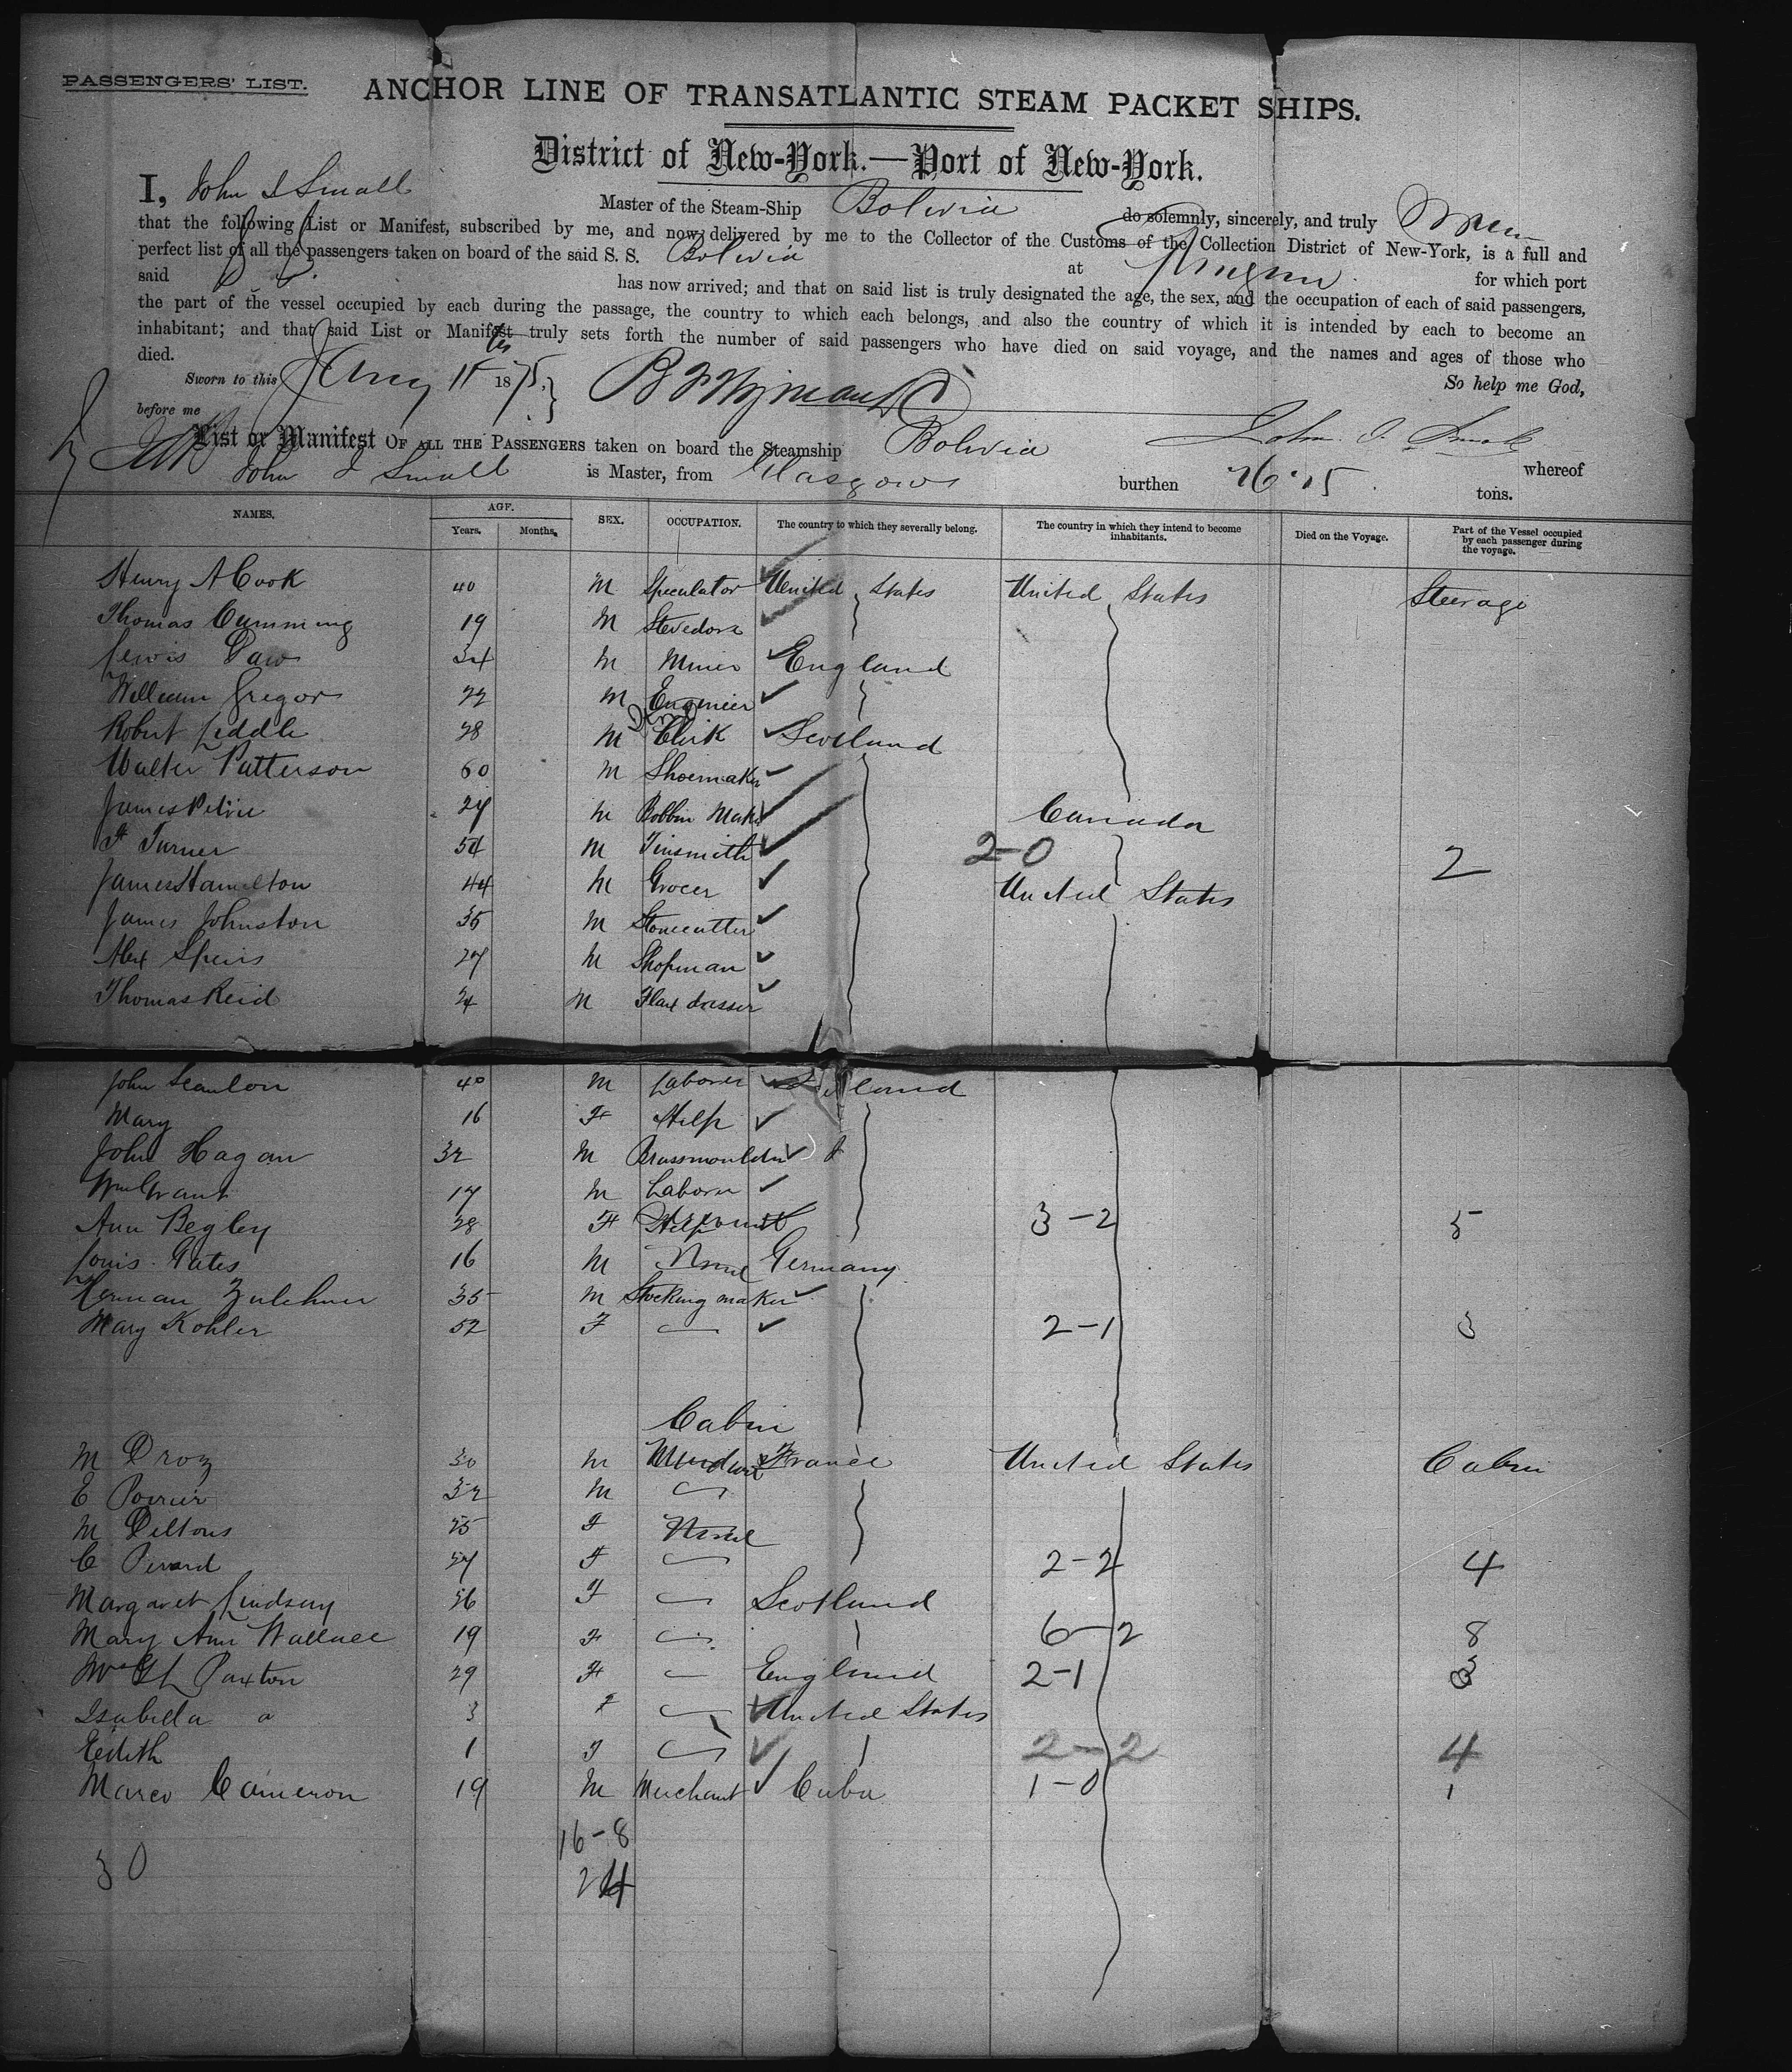 PASSENGERS' LIST.
ANCHOR LINE OF TRANSATLANTIC STEAM PACKET SHIPS.
District of New-York.—Port of New-York.
I, John I Small Master of the Steam-Ship Bolivia do solemnly, sincerely, and truly
that the following List or Manifest, subscribed by me, and now delivered by me to the Collector of the Customs of the Collection District of New-York, is a full and
perfect list of all the passengers taken on board of the said S. S. Bolivia at for which port
said has now arrived; and that on said list is truly designated the age, the sex, and the occupation of each of said passengers,
the part of the vessel occupied by each during the passage, the country to which each belongs, and also the country of which it is intended by each to become an
inhabitant; and that said List or Manifest truly sets forth the number of said passengers who have died on said voyage, and the names and ages of those who
died. So help me God,
Sworn to this 1875.
before me John I. Small
List or Manifest OF ALL THE PASSENGERS taken on board the Steamship Bolivia whereof
John I Small is Master, from Glasgow burthen tons.
NAMES. AGE. SEX. OCCUPATION. The country to which they severally belong. The country in which they intend to become inhabitants. Died on the Voyage. Part of the Vessel occupied by each passenger during the voyage.
Years. Months.
Henry A Cook 40 M Speculator United States United States Steerage
Thomas Cumming 19 M Stevedore
Lewis Daw 34 M Miner England
William Gregor 22 M Engineer
Robert Liddle 28 M Clerk Scotland
Walter Patterson 60 M Shoemaker
James Petrie 27 M Bobbin Maker Canada
Turner 54 M Tinsmith 2-0 2
James Hamilton 44 M Grocer United States
James Johnston 35 M Stonecutter
Alex Speirs 27 M Shopman
Thomas Reid 24 M Flax dresser
John Scanlon 40 M Laborer Ireland
Mary 16 F Help
John Hagan 32 M Brassmoulder
Wm Grant 17 M Laborer
Ann Begley 28 F Help 3-2 5
Louis Gates 16 M None Germany
Herman Zulchner 35 M Stocking maker
Mary Kohler 52 F 2-1 3
Cabin
M Droz 30 M Merchant France United States Cabin
E Poirier 32 M
M Deltons 25 F None
C Perard 27 F 2-2 4
Margaret Lindsay 26 F Scotland
Mary Ann Wallace 19 F 6-2 8
Paxton 29 F England 2-1 3
Isabella a 3 F United States
Edith 1 F 2-2 4
Marco Cameron 19 M Merchant Cuba 1-0 1
16-8
30 24